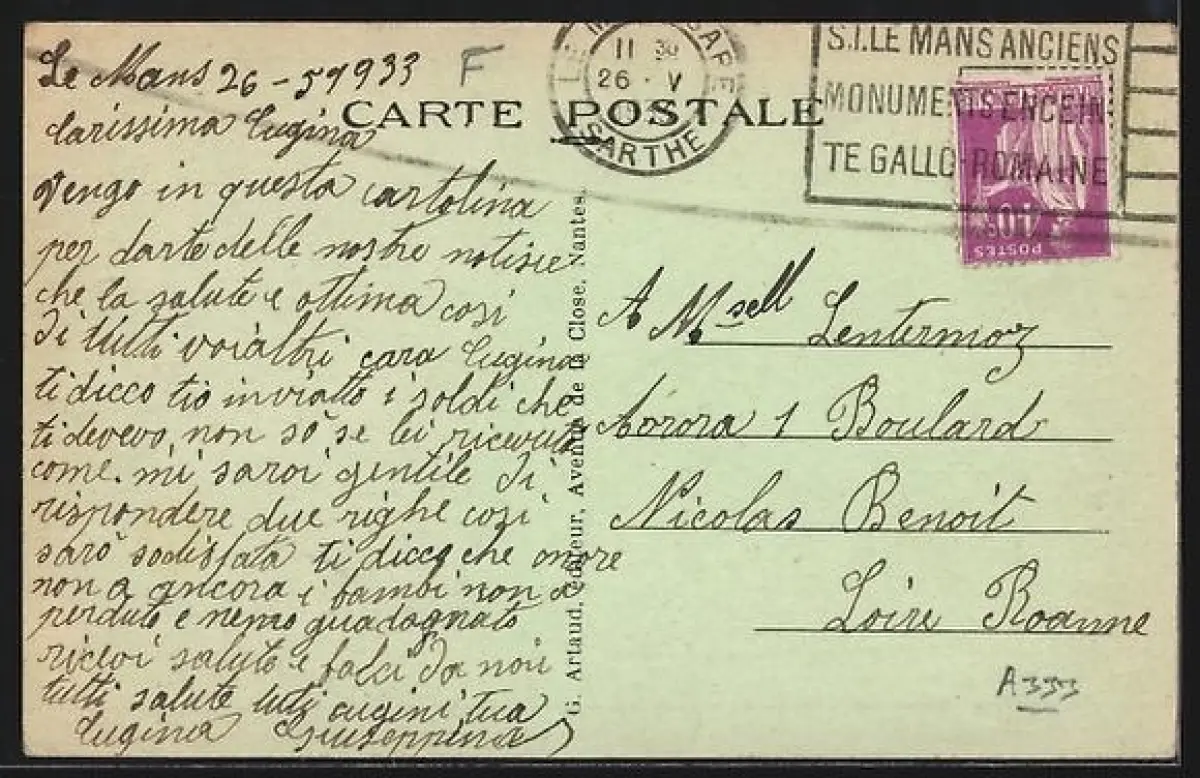 Le Mans 26-5 1933
F
11 30
26 · V
SARTHE
S.I. LE MANS ANCIENS
MONUMENTS ENCEIN-
TE GALLO-ROMAINE
CARTE POSTALE
POSTES
40c
Carissima Cugina
vengo in questa cartolina
per darte delle nostre notisie
che la salute e ottima cosi
di tutti voialtri cara Cugina
ti dicco tio inviatto i soldi che
ti devevo, non sò se lei ricevuta
come. mi saroi gentile di
rispondere due righe cozi
sarò sodisfata ti dicco che
non a ancora i bambi non a
perduto e nemo guadagnato
ricevi saluto e falci da noii
tutti salute tuti cugini tua
Cugina Giuseppina
G. Artaud, Editeur, Avenue de la Close, Nantes.
A Msell Lentermoz
Aorora 1 Boulard
Nicolas Benoit
Loire Roanne
A333